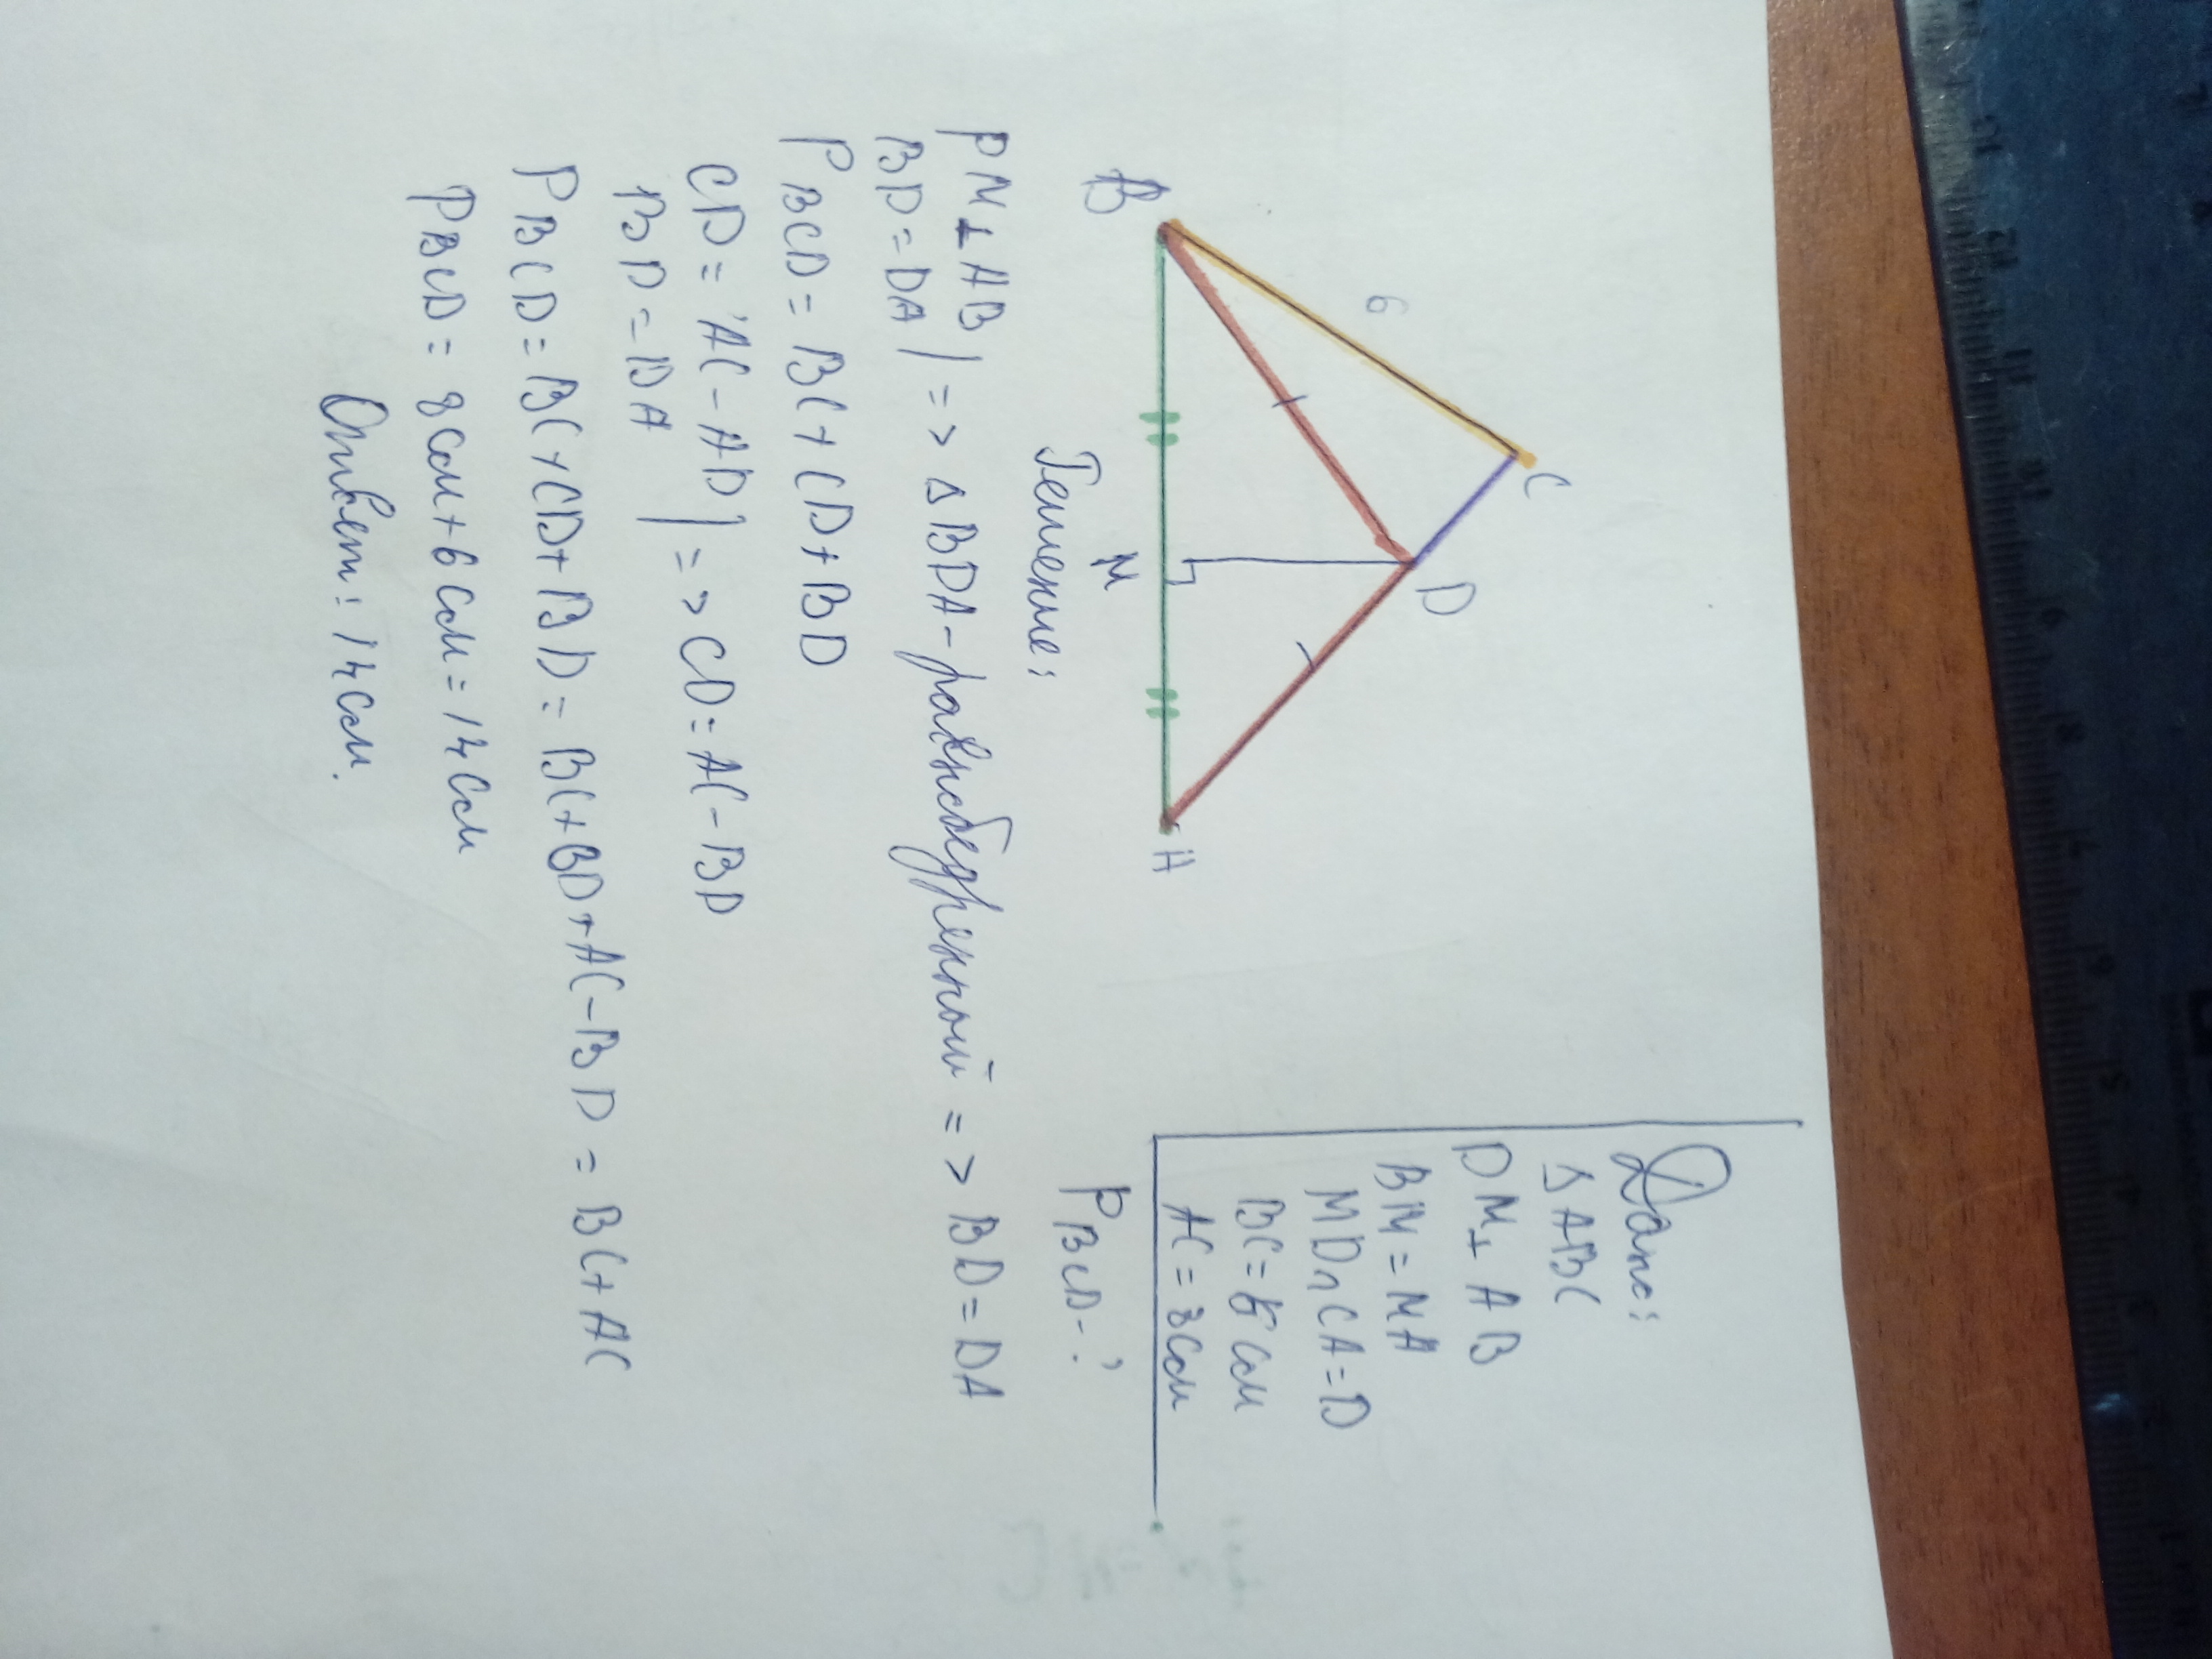 Дано:
Δ ABC
DM ⊥ AB
BM = MA
MD ∩ CA = D
BC = 6 см
AC = 8 см
P BCD - ?
C
6
D
B
M
A
Решение:
DM ⊥ AB | => Δ BDA - равнобедренный => BD = DA
BD = DA
P BCD = BC + CD + BD
CD = AC - AD | => CD = AC - BD
BD = DA
P BCD = BC + CD + BD = BC + BD + AC - BD = BC + AC
P BCD = 8 см + 6 см = 14 см
Ответ: 14 см.